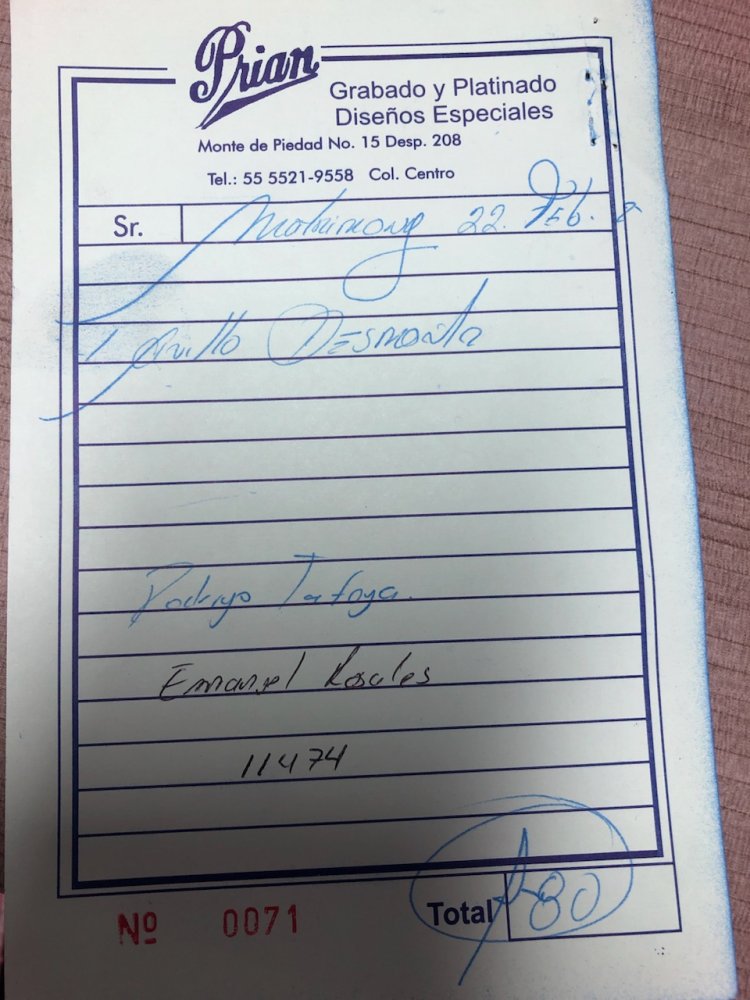 Prian
Grabado y Platinado
Diseños Especiales
Monte de Piedad No. 15 Desp. 208
Tel.: 55 5521-9558 Col. Centro
Sr. 22. Feb.
Rodrigo Tafoya.
Emanuel Rosales
11474
Nº 0071
Total 80